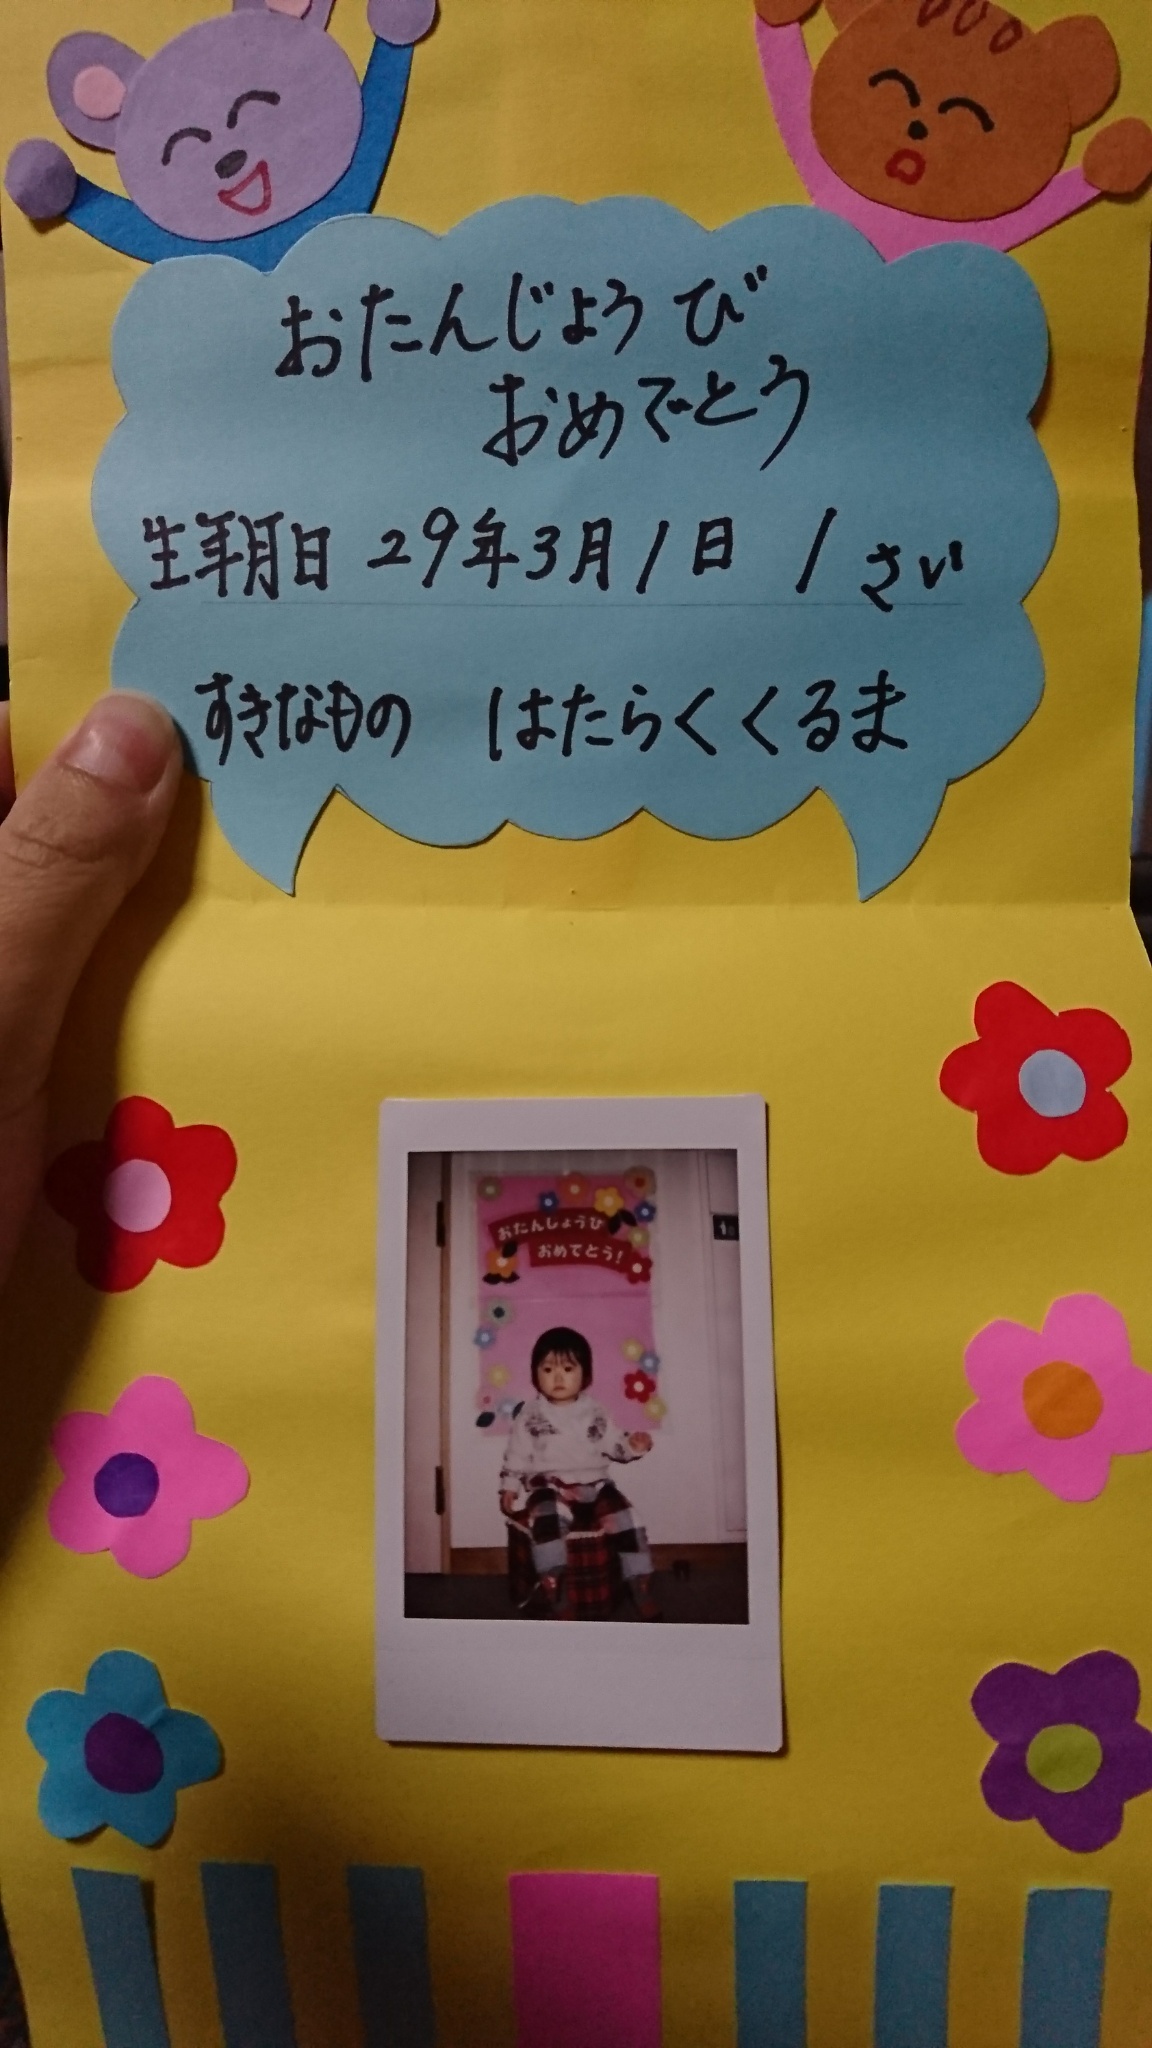 おたんじょうび
おめでとう
生年月日 29年3月1日 1さい
すきなもの はたらくくるま
おたんじょうび
おめでとう!